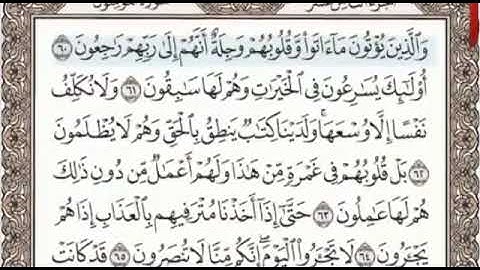 وَٱلَّذِينَ يُؤْتُونَ مَآ ءَاتَوا۟ وَّقُلُوبُهُمْ وَجِلَةٌ أَنَّهُمْ إِلَىٰ رَبِّهِمْ رَٰجِعُونَ ٦٠
أُو۟لَٰٓئِكَ يُسَٰرِعُونَ فِى ٱلْخَيْرَٰتِ وَهُمْ لَهَا سَٰبِقُونَ ٦١ وَلَا نُكَلِّفُ
نَفْسًا إِلَّا وُسْعَهَا ۖ وَلَدَيْنَا كِتَٰبٌ يَنطِقُ بِٱلْحَقِّ وَهُمْ لَا يُظْلَمُونَ
٦٢ بَلْ قُلُوبُهُمْ فِى غَمْرَةٍ مِّنْ هَٰذَا وَلَهُمْ أَعْمَٰلٌ مِّن دُونِ ذَٰلِكَ
هُمْ لَهَا عَٰمِلُونَ ٦٣ حَتَّىٰٓ إِذَآ أَخَذْنَا مُتْرَفِيهِم بِٱلْعَذَابِ إِذَا هُمْ
يَجْـَٔرُونَ ٦٤ لَا تَجْـَٔرُوا۟ ٱلْيَوْمَ ۖ إِنَّكُم مِّنَّا لَا تُنصَرُونَ ٦٥ قَدْ كَانَتْ